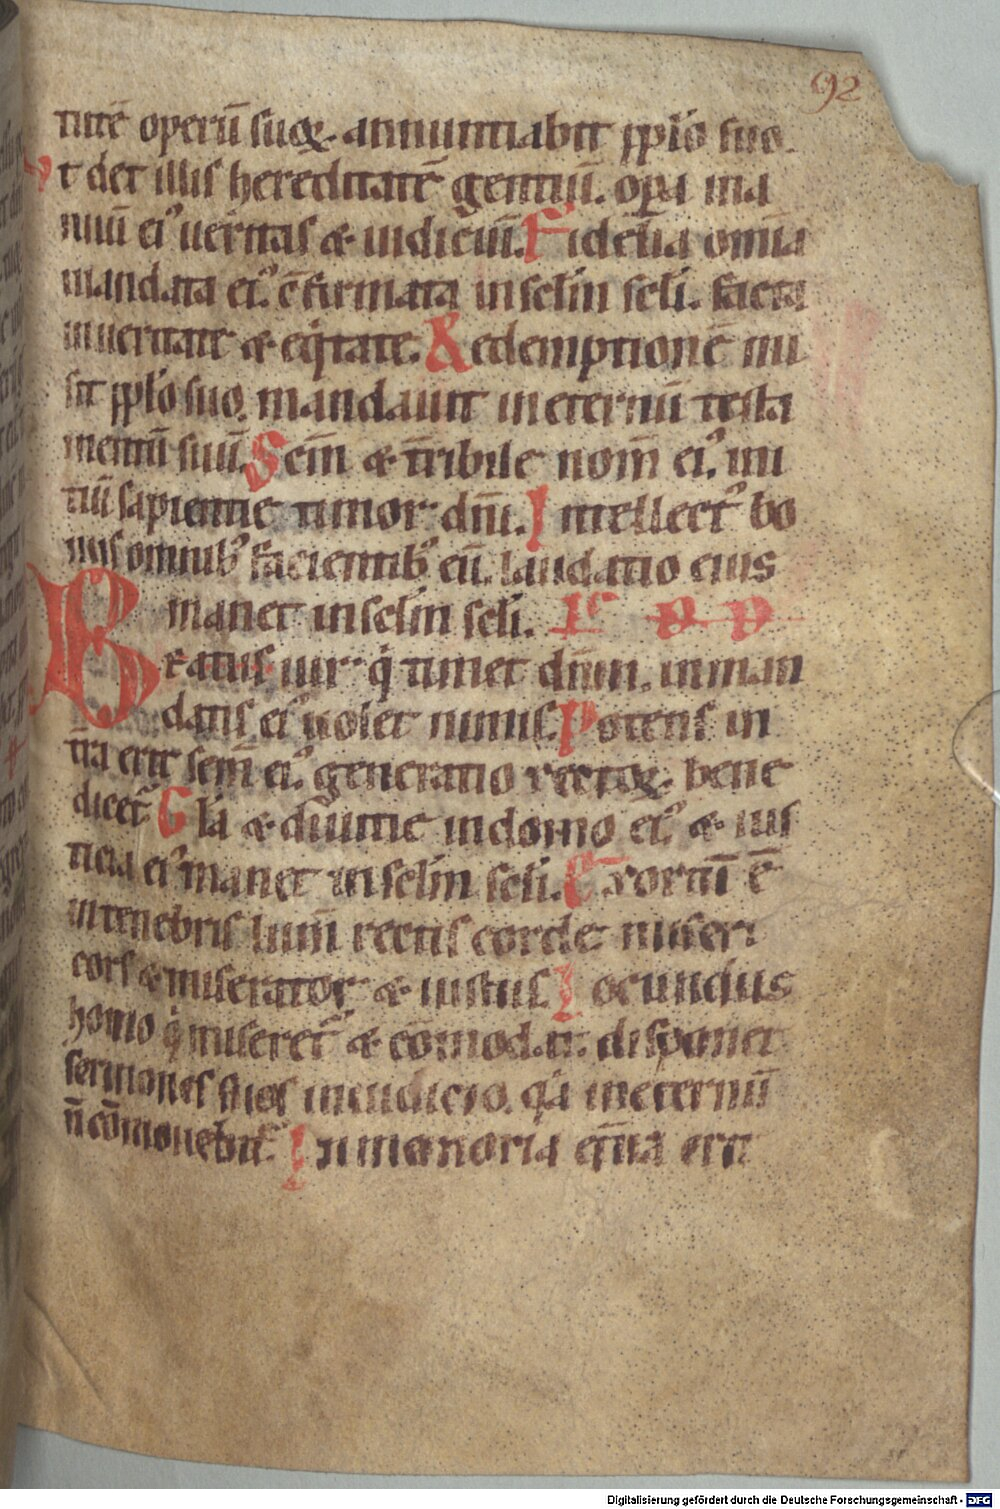 92
tutē operū suoꝝ. annuntiabit pplo suo.
Vt det illis hereditatē gentiū. opa ma
nuū ei᾽ ueritas & iudiciū. Fidelia omīa
mandata ei᾽. cfirmata in sclm scli. facta
in ueritate & eq̇tate. Redemptionē mi
sit pplo suo. mandauit in eternū testa
mentū suū. Scm̄ & tribile nom̄ ei᾽. ini
tiū sapientie timor dn̄i. Intellect᾽ bo
nus omnib᾽ facientib᾽ eū. laudatio eius
manet in sclm scli.
Beatus uir q̇ timet dn̄m. in man
datis ei᾽ uolet nimis. Potens in
tra erit sem̄ ei᾽. generatio rectoꝝ bene
dicet᾽ Gla & diuitie in domo ei᾽. & ius
ticia ei᾽ manet in sclm scli. Exortū ē
in tenebris lum̄ rectis corde miseri
cors & miserator & iustus Iocundus
homo q̇ miseret᾽ & cōmodat. disponet
sermones suos in iudicio. q̇a in eternū
n̄ cōmouebit᾽. In memoria et̄na erit
Digitalisierung gefördert durch die Deutsche Forschungsgemeinschaft - DFG